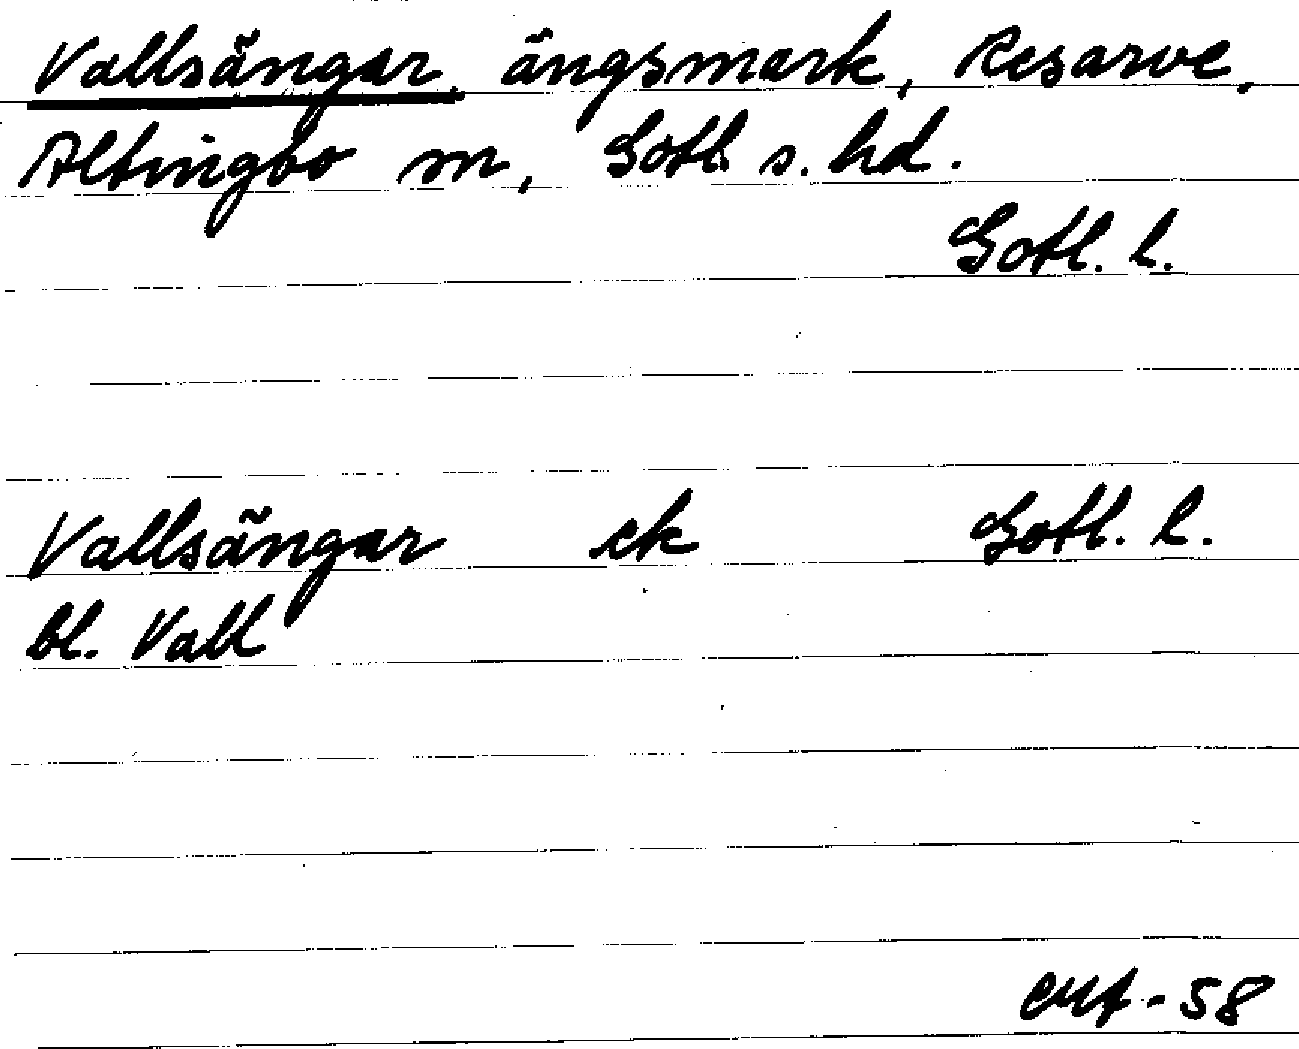 Vallsängar, ängsmark, Resarve,
Altingbo m, Gotl. s. hd.
Gotl. l.
Vallsängar ek Gotl. l.
bl. Vall
-58